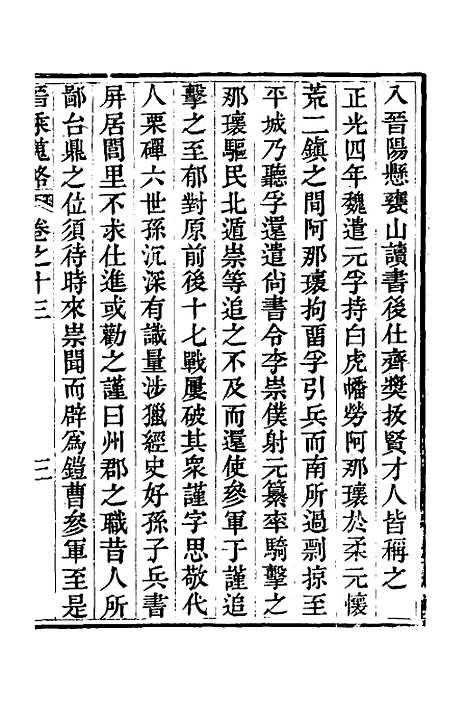 入晉陽懸甕山讀書後仕齊奬拔賢才人皆稱之
正光四年魏遣元孚持白虎幡勞阿那瓌於柔元懷
荒二鎭之間阿那瓌拘畱孚引兵而南所過剽掠至
平城乃聽孚還遣尙書令李崇僕射元纂率騎擊之
那瓌驅民北遁崇等追之不及而還使參軍于謹追
擊之至郁對原前後十七戰屢破其衆謹字思敬代
人栗磾六世孫沉深有識量涉獵經史好孫子兵書
屏居閭里不求仕進或勸之謹曰州郡之職昔人所
鄙台鼎之位須待時來崇聞而辟爲鎧曹參軍至是
晉乘蒐略 卷之十三 三